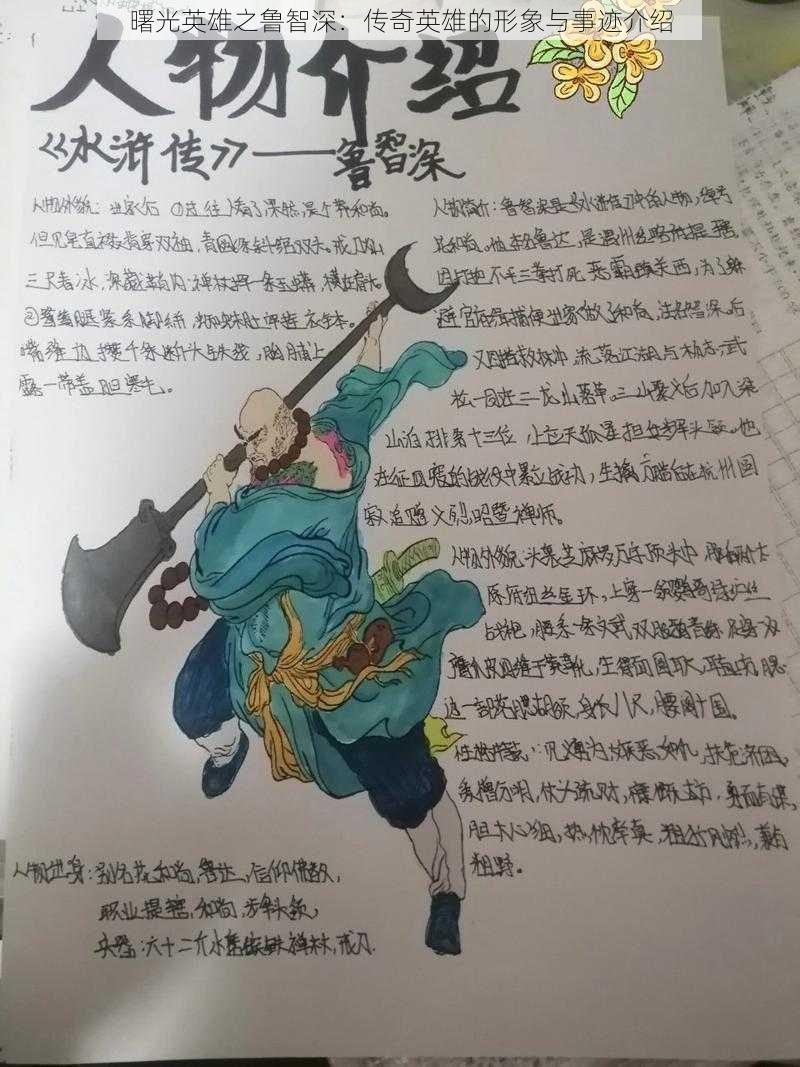 曙光英雄之鲁智深：传奇英雄的形象与事迹介绍
人物介绍
《水浒传》——鲁智深
人物外貌：出家后
但见皂直裰背穿双袖，青圆绦斜绾双头。戒刀
三尺春冰，深藏鞘内；禅杖挥一条玉蟒，横在肩头。
嘴缝边攒千条断头铁线，胸脯上
露一带盖胆寒毛。
人物简介：鲁智深是《水浒传》中的人物，绰号
花和尚。他本名鲁达，是渭州经略府提辖，
因打抱不平三拳打死恶霸镇关西，为了躲
避官府缉捕便出家做了和尚，法名智深。后
又因搭救林冲，流落江湖，与杨志、武
松一同在二龙山落草。三山聚义后加入梁
山泊，排第十三位，上应天孤星，担任步军头领。他
在征四寇的战役中屡立战功，生擒方腊后在杭州圆
寂，追赠义烈昭暨禅师。
人物外貌：头裹芝麻罗万字顶头巾，脑后两个太
原府扭丝金环，上穿一领鹦哥绿纻丝
战袍，腰系一条文武双股鸦青绦，足穿一双
鹰爪皮四缝干黄靴，生得面圆耳大，鼻直口方，腮
边一部貉腮胡须，身长八尺，腰阔十围。
性格特点：见义勇为，嫉恶如仇，扶危济困，
爱憎分明，仗义疏财，慷慨大方，勇而有谋，
胆大心细，热忱率真，粗犷
粗野。
人物出身：别名花和尚、鲁达，信仰佛教，
职业提辖，和尚，步军头领，
兵器：六十二斤水磨镔铁禅杖，戒刀